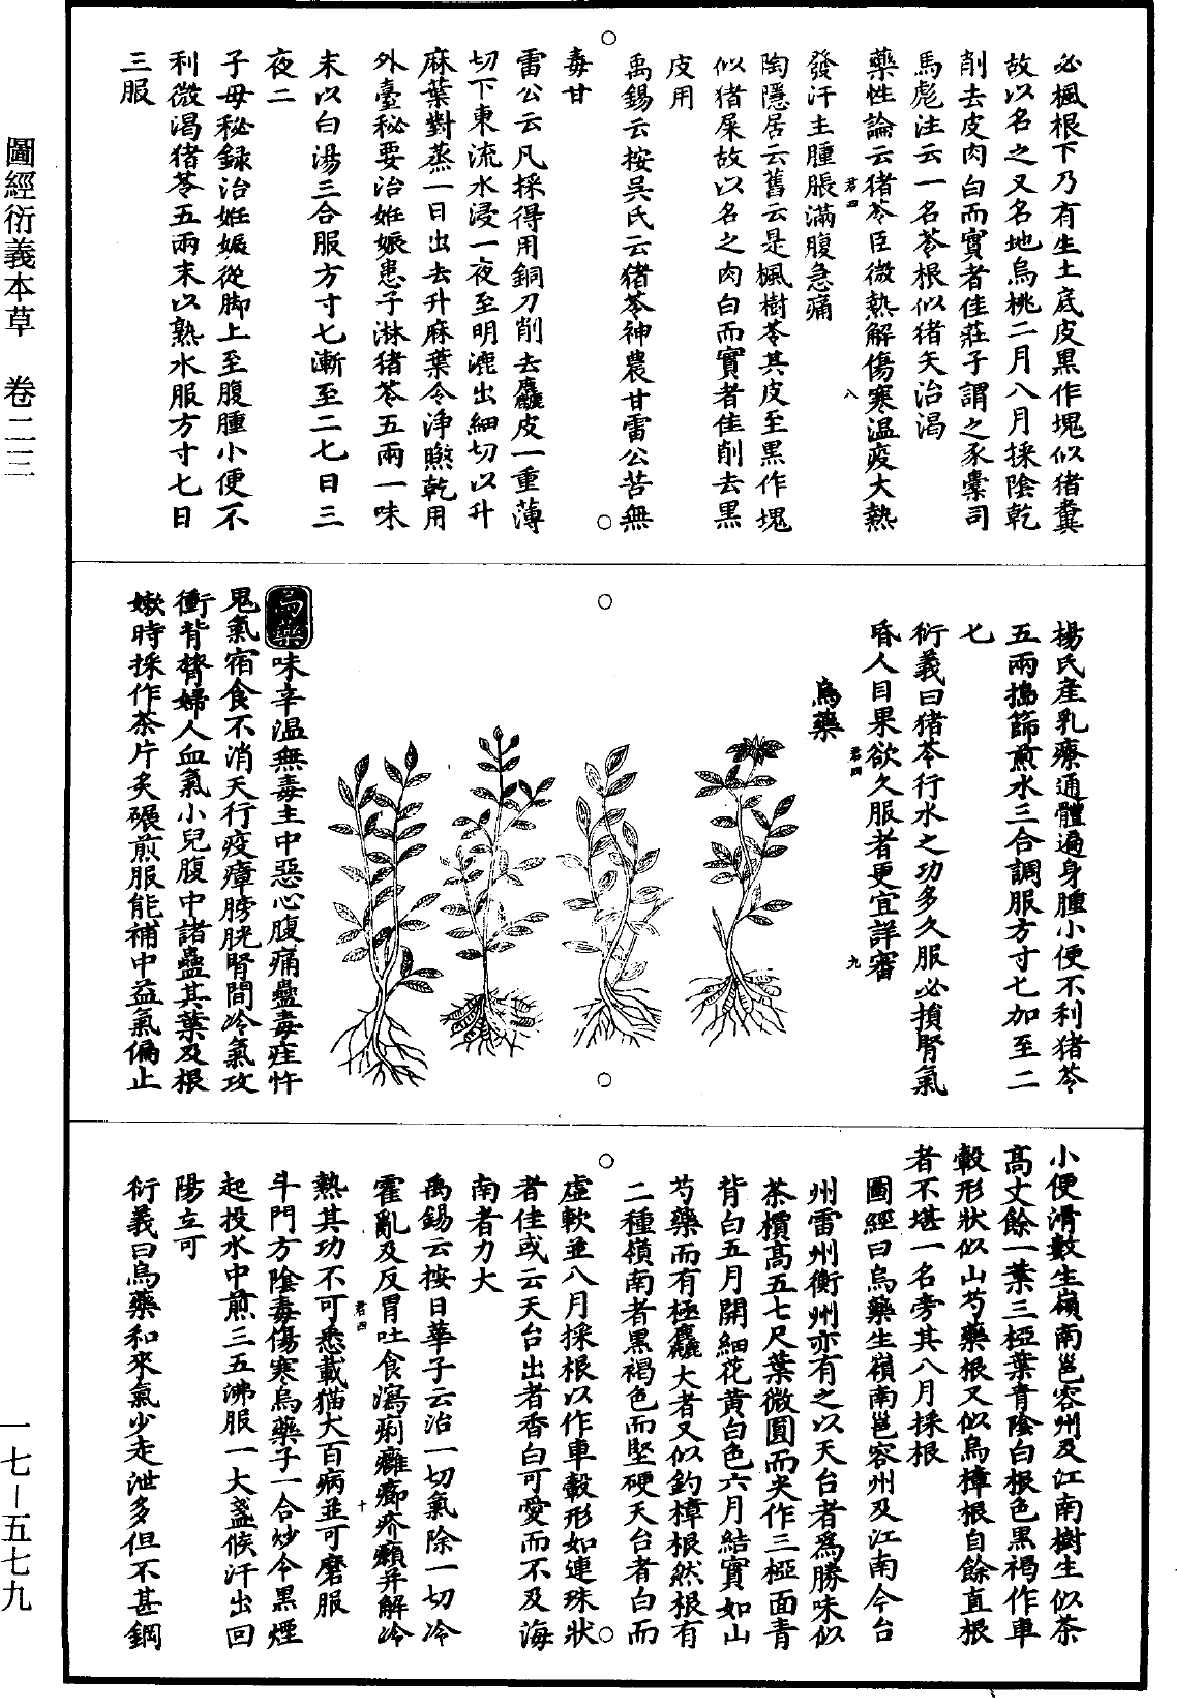 必楓根下乃有生土底皮黑作塊似猪糞
故以名之又名地烏桃二月八月採陰乾
削去皮肉白而實者佳莊子謂之豕櫜司
馬彪注云一名苓根似猪矢治渴
藥性論云猪苓臣微熱解傷寒温疫大熱
君四
八
發汗主腫脹滿腹急痛
陶隱居云舊云是楓樹苓其皮至黑作塊
似猪屎故以名之肉白而實者佳削去黑
皮用
禹錫云按吳氏云猪苓神農甘雷公苦無
毒甘
雷公云凡採得用銅刀削去麤皮一重薄
切下東流水浸一夜至明漉出細切以升
麻葉對蒸一日出去升麻葉令淨㬠乾用
外臺秘要治姙娠患子淋猪苓五兩一味
末以白湯三合服方寸七漸至二七日三
夜二
子母秘録治姙娠從脚上至腹腫小便不
利微渴猪苓五兩末以熟水服方寸七日
三服
楊氏産乳療通體遍身腫小便不利猪苓
五兩搗篩煎水三合調服方寸七加至二
七
衍義曰猪苓行水之功多久服必損腎氣
昏人目果欲久服者更宜詳審
君四
九
烏藥
烏藥味辛温無毒主中惡心腹痛蠱毒疰忤
鬼氣宿食不消天行疫瘴膀胱腎間冷氣攻
衝背膂婦人血氣小兒腹中諸蠱其葉及根
嫩時採作茶片炙碾煎服能補中益氣偏止
小便滑數生嶺南邕容州及江南樹生似茶
高丈餘一葉三椏葉青陰白根色黑褐作車
轂形狀似山芍藥根又似烏樟根自餘直根
者不堪一名旁其八月採根
圖經曰烏藥生嶺南邕容州及江南今台
州雷州衡州亦有之以天台者爲勝味似
茶檟高五七尺葉微圓而尖作三椏面青
背白五月開細花黄白色六月結實如山
芍藥而有極麤大者又似釣樟根然根有
二種嶺南者黑褐色而堅硬天台者白而
虛軟並八月採根以作車轂形如連珠狀
者佳或云天台出者香白可愛而不及海
南者力大
禹錫云按日華子云治一切氣除一切冷
霍亂及反胃吐食瀉痢癰癤疥癩并解冷
君四
十
熱其功不可悉載猫犬百病並可磨服
斗門方陰毒傷寒烏藥子一合炒令黑煙
起投水中煎三五沸服一大盞候汗出回
陽立可
衍義曰烏藥和來氣少走泄多但不甚鋼
圖經衍義本草　卷二三
一七－五七九